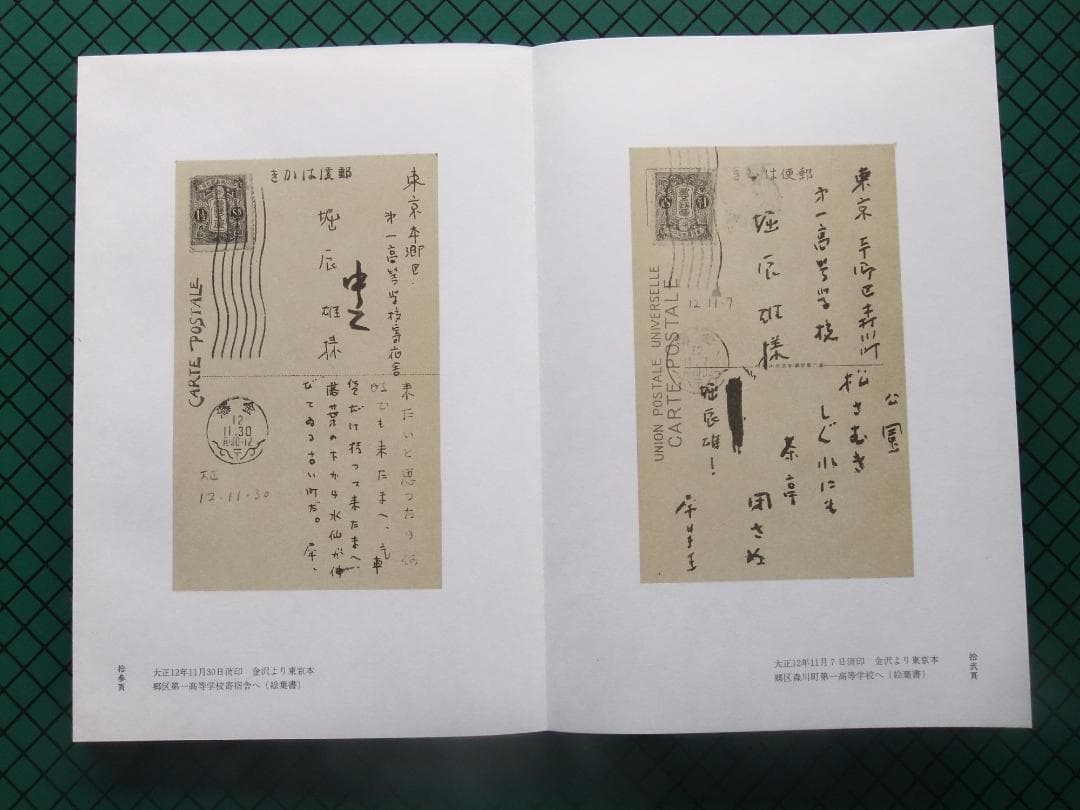 郵便はかき
東京 本郷区森川町
第一高等学校
堀辰雄様
12 11.7
UNION POSTALE UNIVERSELLE
CARTE POSTALE
公園
松さむき
しぐれにも
茶亭
閉さぬ
堀辰雄!
大正12年11月7日消印 金沢より東京本
郷区森川町第一高等学校へ〔絵葉書〕
拾弐頁
郵便はかき
東京本郷区
第一高等学校寄宿舎
堀辰雄様
CARTE POSTALE
12
11.30
大正
12-11-30
来たいと思つたら何
時でも来たまへ、汽車
賃だけ持つて来たまへ。
落葉の下から水仙が伸
びてゐる古い町だ。犀、
大正12年11月30日消印 金沢より東京本
郷区第一高等学校寄宿舎へ〔絵葉書〕
拾参頁